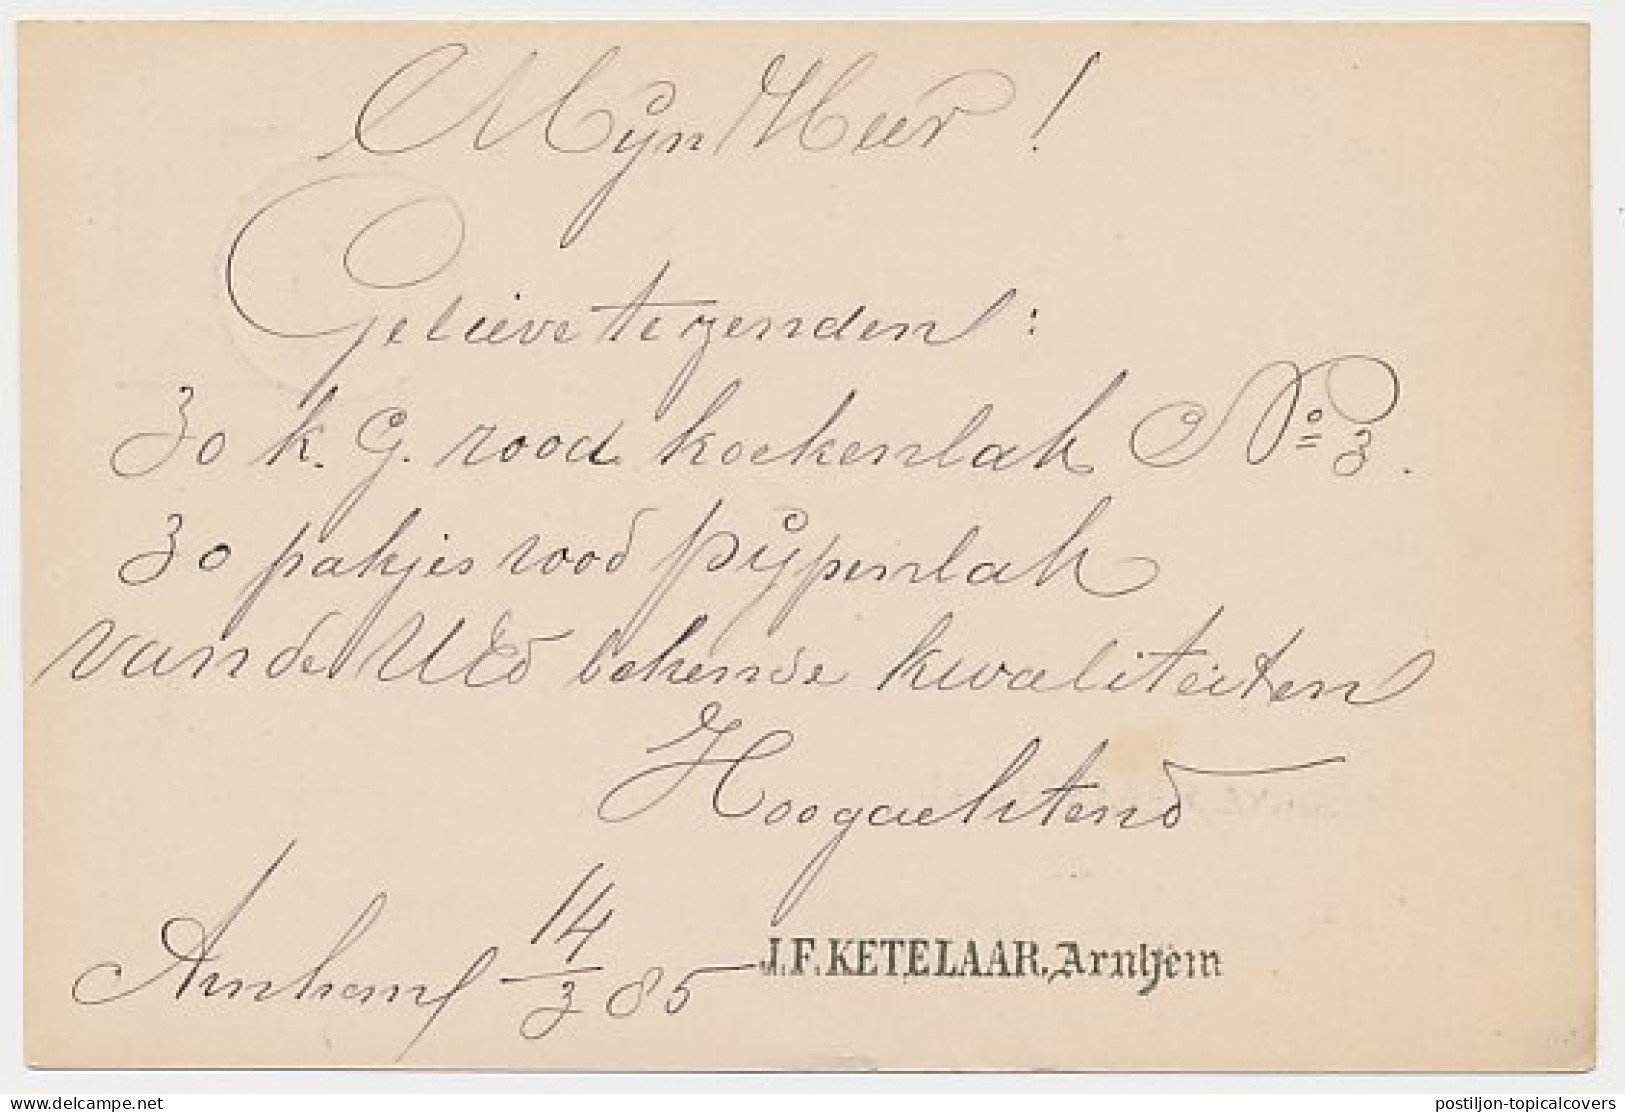 Mijn Heer !
Gelieve te zenden :
30 k. G. rood koekenlak No 3.
30 pakjes rood pijpenlak
van de UEd bekende kwaliteiten
Hoogachtend
Arnhem 14/3 85
J.F. KETELAAR, Arnhem
delcampe.net
postiljon-topicalcovers